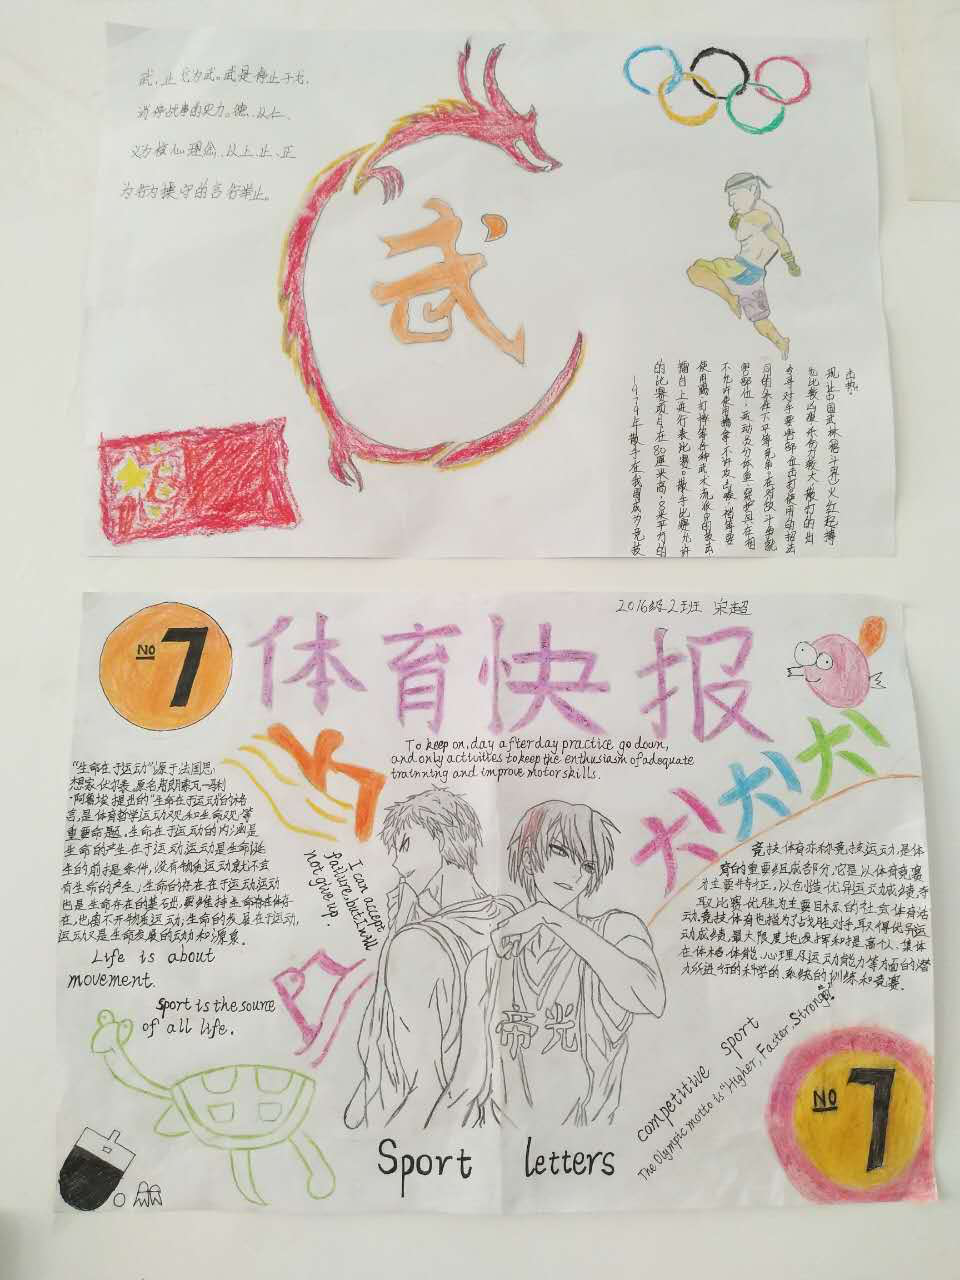 武，止戈为武。武是停止干戈，
消停战事的实力。德，从仁、
义为核心理念，以上、止、正
为行为操守的言行举止。
武
击势。
现让中国武林格斗界少火红起搏
今寻对手要害部位击打使用的招法
害部位，运动员分体重，穿护具在相
不允许使用擒拿，不许攻击喉、裆等要
使用踢、打、摔等各种武术流派中的技法
擂台上进行表比赛。散手比赛允许
的比赛项目在80厘米高，8米平方的
1979年散手在我国成为竞技
2016级2班 宋超
NO 7
体育快报
To keep on, day after day practice go down,
and only activities to keep the enthusiasm of adequate
trainning and improve motor skills.
“生命在于运动”源于法国思
想家伏尔泰，原名弗朗索瓦一马利
·阿鲁埃提出的“生命在于运动”的格
言，是体育哲学运动观和生命观等
重要命题。生命在于运动的内涵是
生命的产生在于运动，运动是生命诞
生的前提条件，没有物质运动就不会
有生命的产生，生命的存在在于运动运动
也是生命存在的基础，要维持生命存在体存
在，也离不开物质运动，生命的发展在于运动，
运动又是生命发展的动力和源泉。
Life is about
movement.
Sport is the source
of all life.
I can accept
failure, but I will
not give up.
帝光
竞技体育亦称竞技运动，是体
育的重要组成部分，它是以体育竞赛
为主要特征，以创造优异运动成绩，夺
取比赛优胜为主要目标的社会体育活
动。竞技体育也指为了战胜对手，取得优异运
动成绩，最大限度地发挥和提高个人、集体
在体格、体能、心理及运动能力等方面的潜
力所进行的科学的、系统的训练和竞赛。
competitive sport
The Olympic motto is “Higher, Faster, Stronger”
NO 7
Sport letters